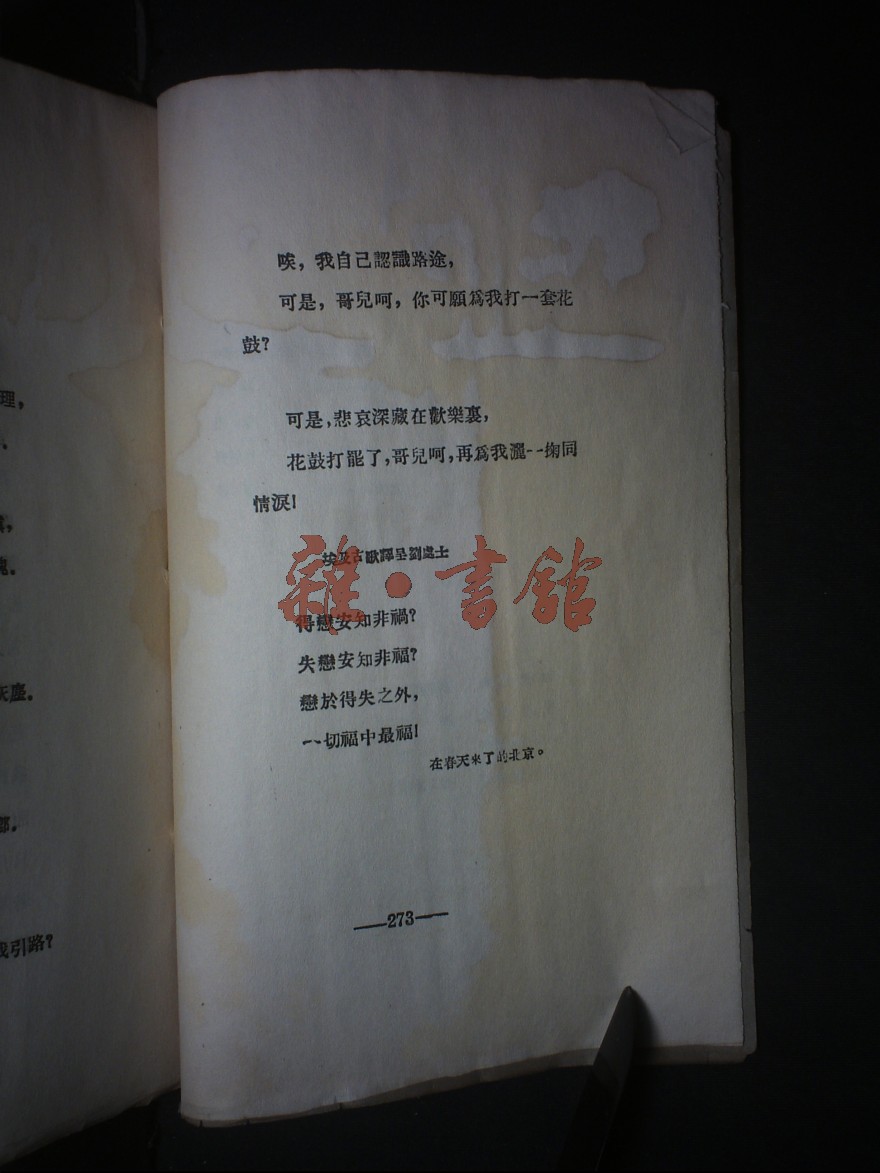 理，
灰塵。
部。
我引路？
唉，我自己認識路途，
可是，哥兒呵，你可願爲我打一套花
鼓？
可是，悲哀深藏在歡樂裏，
花鼓打罷了，哥兒呵，再爲我灑一掬同
情淚！
埃及古歌譯呈劉處士
雜·書館
得戀安知非禍？
失戀安知非福？
戀於得失之外，
一切福中最福！
在春天來了的北京。
——273——